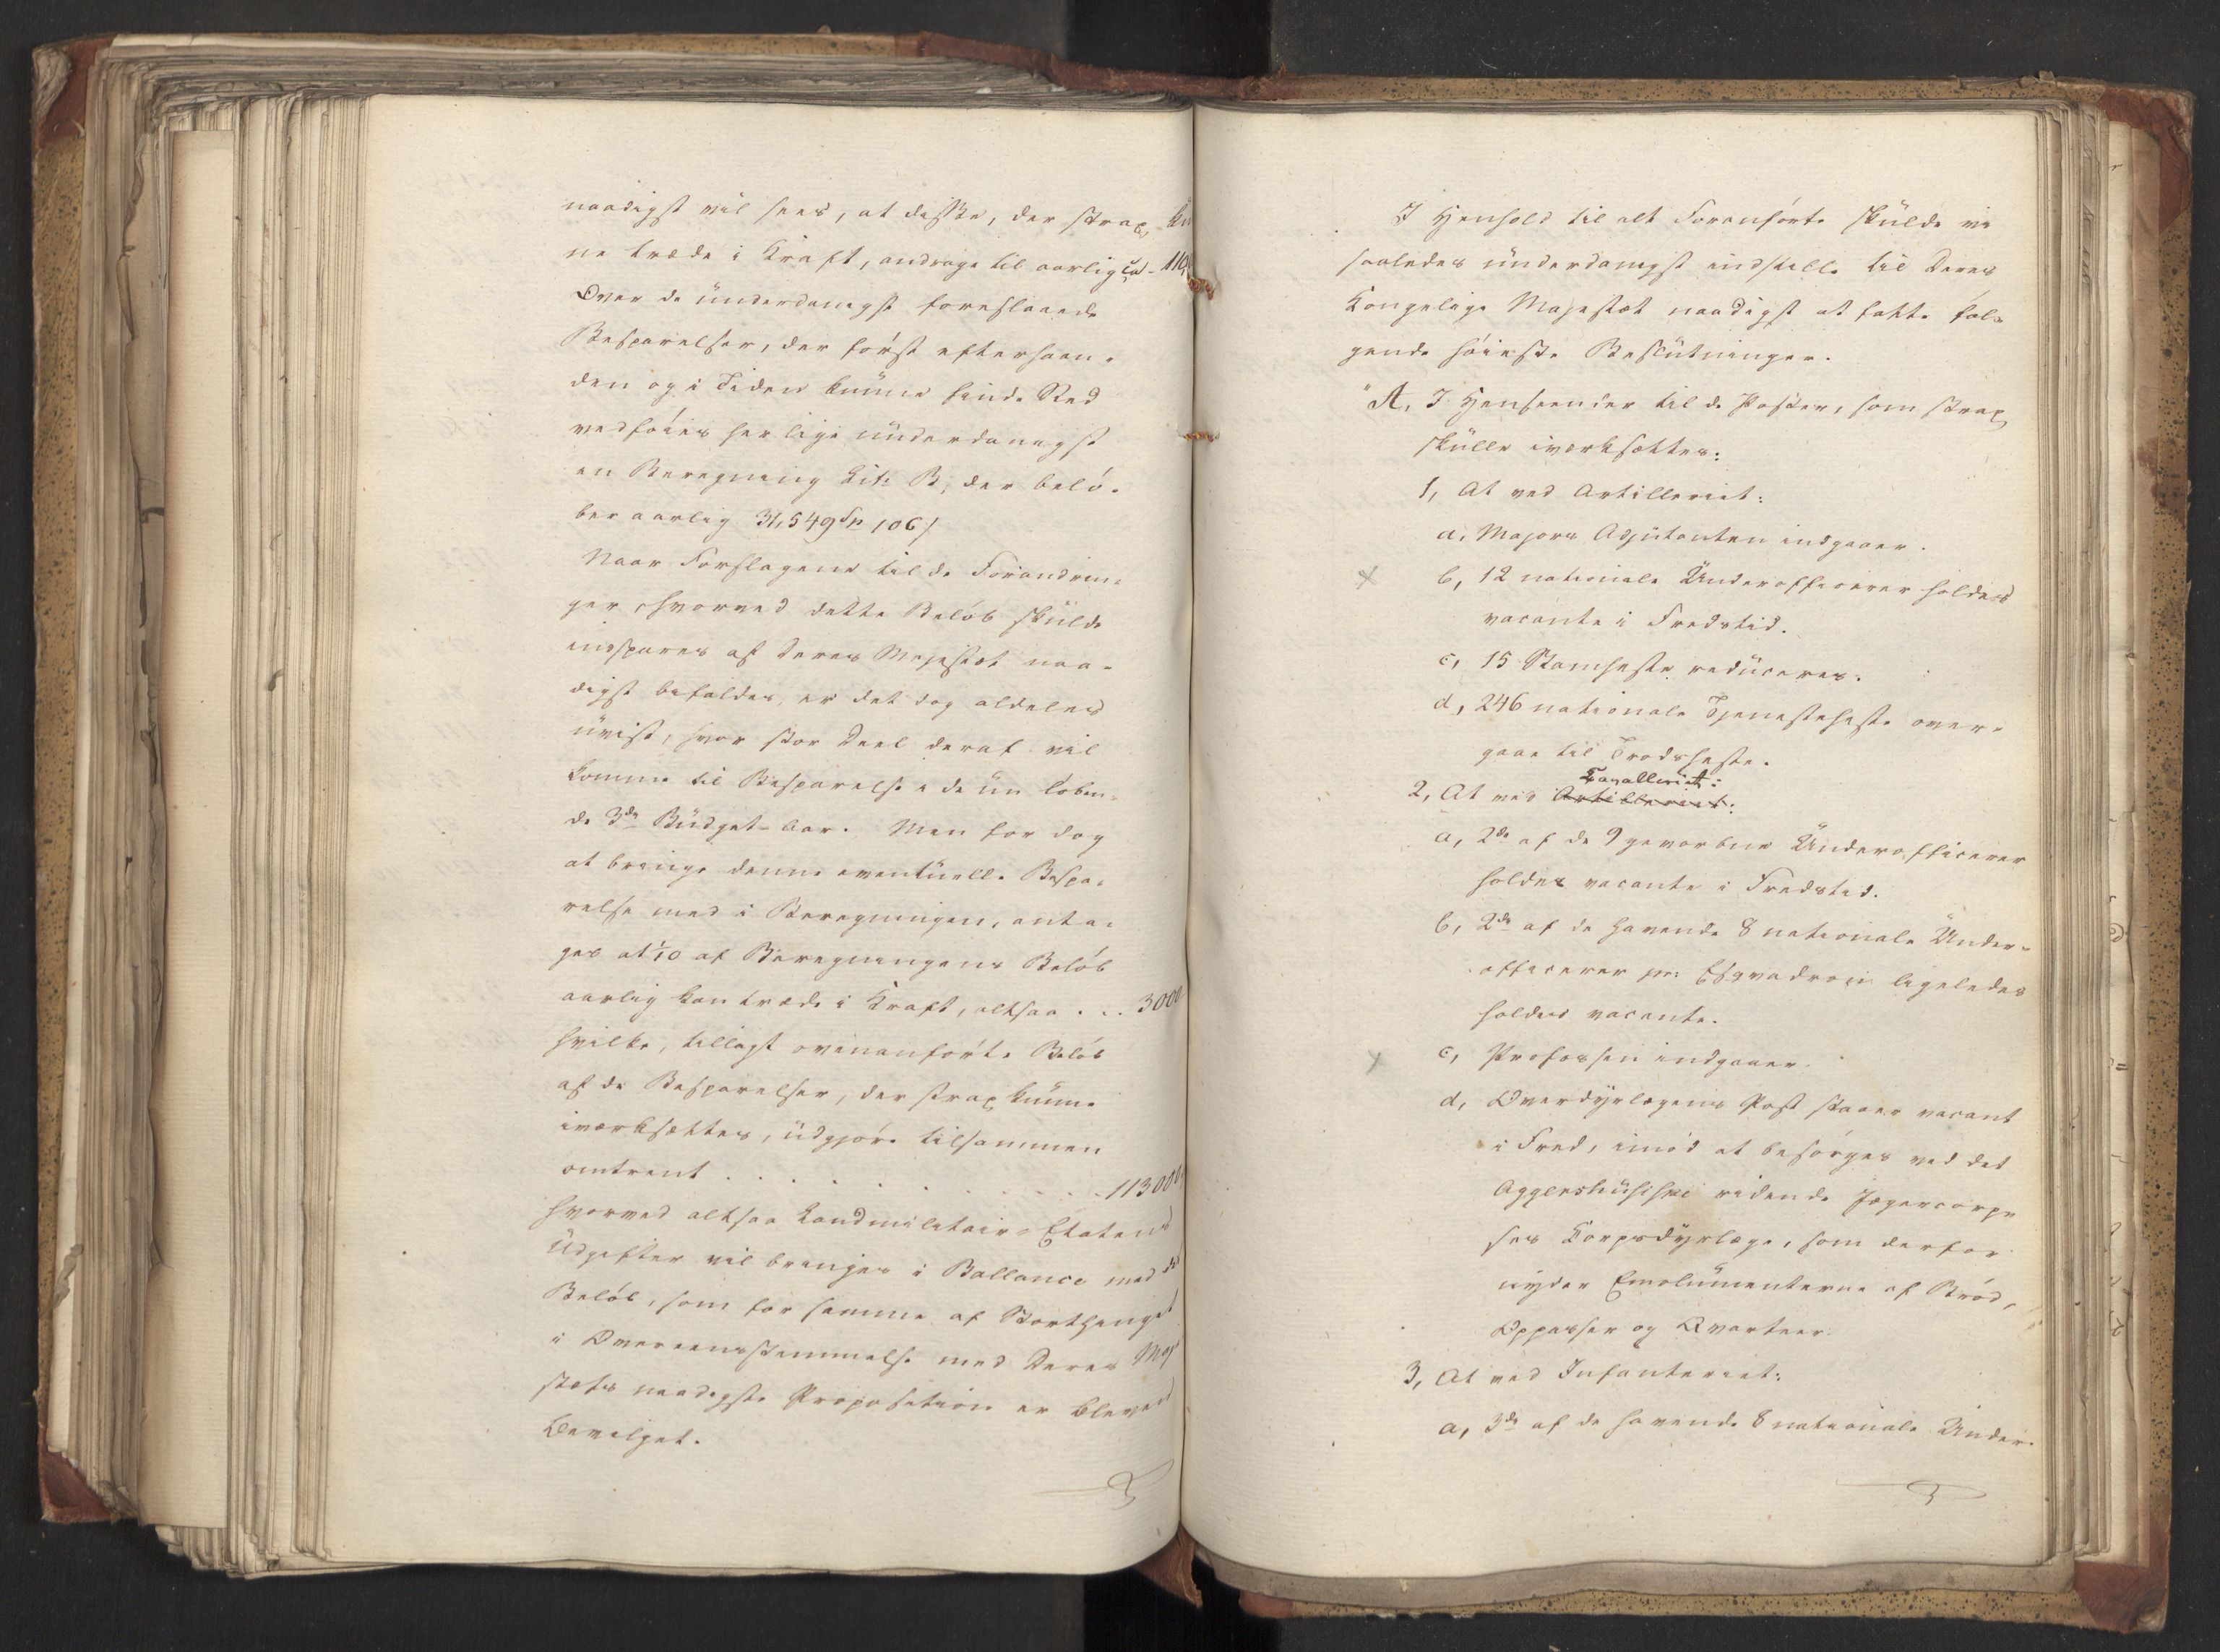 naadigst vil sees, at disse, der strax kun-
ne træde i Kraft, andrage til aarlig ca 110
Over de ünderdanigst foreslaaede
Besparelser, der først efterhaan-
den og i Tiden kunne finde Sted
vedføies her lige ünderdanigst
en Beregning Lit: B, der belø-
ber aarlig 31,549 Sp 106 /
Naar Forslagene til de Forandrin-
ger, hvorved dette Beløb skülde
indspares af Deres Majestæt naa-
digst bifaldes, er det dog aldeles
üvist, hvor stor Deel deraf vil
komme til Besparelse i de nu løben-
de 3de Büdget-Aar. Men for dog
at bringe denne eventüelle Bespa-
relse med i Beregningen, anta-
ges at 1/10 af Beregningens Beløb
aarlig kan træde i Kraft, altsaa . . . 3000
hvilke, tillagt ovenanførte Beløb
af de Besparelser, der strax kunne
iværksættes, üdgjøre tilsammen
omtrent . . . . . . . . . . 113000
hvorved altsaa Landmilitair-Etatens
Üdgifter vil bringes i Ballance med det
Beløb, som for samme af Storthinget
i Overeensstemmelse med Deres Maj
stæts naadigste Proposition er blevet
Bevilget.
I Henhold til alt Foranførte skülde vi
saaledes ünderdanigst indstille til Deres
Kongelige Majestæt naadigst at fatte føl-
gende høieste Beslutninger.
"A, I Henseender til de Poster, som strax
skülle iværksættes:
1, At ved Artilleriet:
a, Majors Adjütanten indgaaer.
x b, 12 nationale Ünderofficerer holdes
vacante i Fredstid.
c, 15 Stamheste redüceres.
d, 246 nationale Tjenesteheste over-
gaae til Trodsheste.
Cavalleriet:
2, At ved Artilleriet:
a, 2de af de 9 gevorbne Ünderofficerer
holdes vacante i Fredstid.
b, 2de af de havende 8 nationale Ünder-
officerer pr: Esqvadron ligeledes
holdes vacante.
x c, Profossen indgaaer.
d, Overdyrlægens Post staaer vacant
i Fred, imod at besørges ved det
Aggershüsiske ridende Jægercorps
ses Korpsdyrlæge, som derfor
nyder Emolümenterne af Brød,
Oppasser og Qvarteer.
3, At ved Infanteriet:
a, 3de af de havende 8 nationale Ünder-